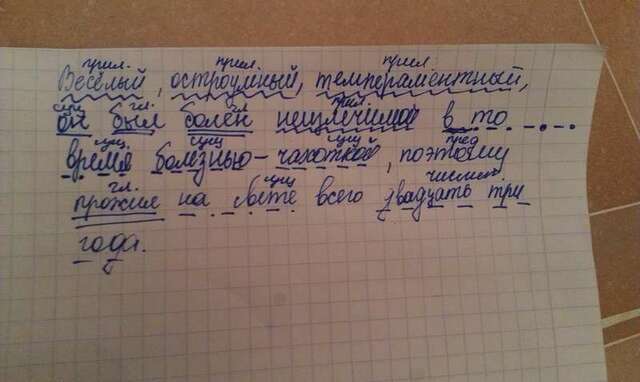 прил. прил. прил.
Весёлый, остроумный, темпераментный,
сущ гл. гл прил.
он был болен неизлечимой в то
сущ сущ сущ пред
время болезнью - чахоткой, поэтому
гл. сущ числит.
прожил на свете всего двадцать три
года.